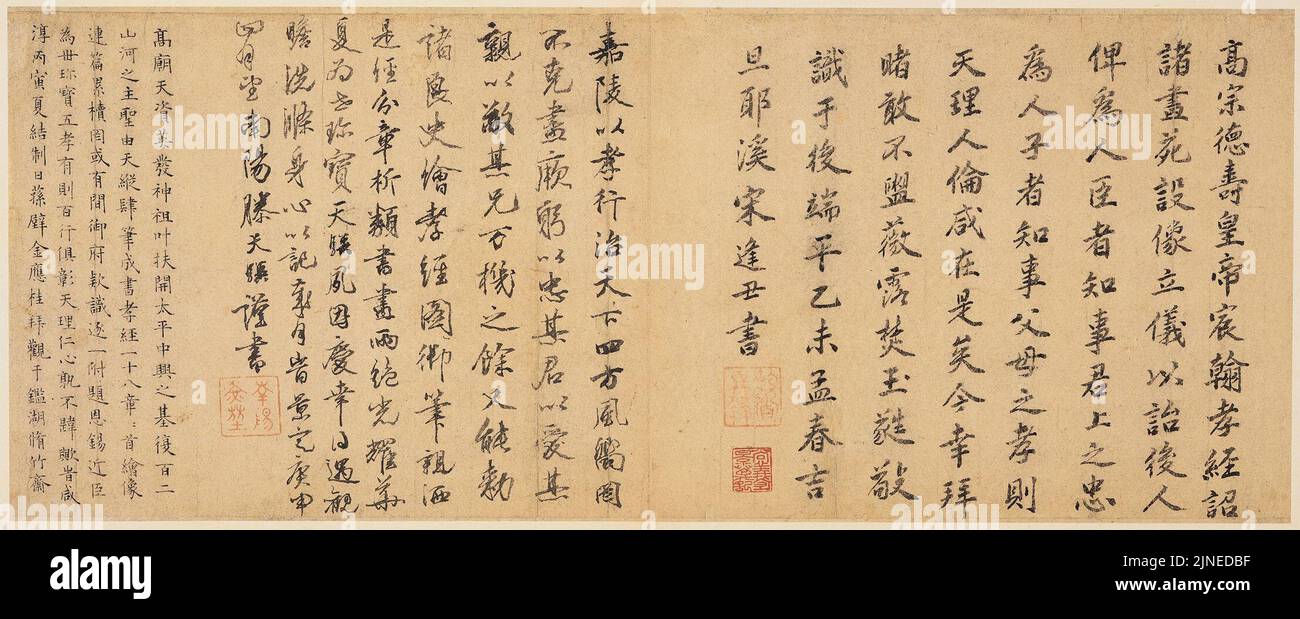 高宗德壽皇帝宸翰孝經詔
諸畫苑設像立儀以詒後人
俾為人臣者知事君上之忠
為人子者知事父母之孝則
天理人倫咸在是矣今幸拜
睹敢不盥薇露焚玉蕤敬
識于後端平乙未孟春吉
旦耶溪宋逢丑書
嘉陵以孝行治天下四方風
不克盡厥躬以忠其君以愛其
親以敬其兄万機之餘又能勅
諸良史繪孝經圖御筆親洒
是經分章析類書畫兩絕光耀華
夏為世珍寶天驥夙因慶幸日遇觀
瞻洗滌身心以記歲月旹景定庚申
四月望南陽滕天驥謹書
高廟天資美發神祖叶扶開太平中興之基復百二
山河之主聖由天縱肆筆成書孝經一十八章章首繪像
連篇累櫝罔或有間御府款識逐一附題恩錫近臣
為世珍寶五孝有則百行俱彰天理仁心孰不韙歟旹咸
淳丙寅夏結制日蓀壁金應桂拜觀于鑑湖脩竹齋
alamy
Image ID: 2JNEDBF
www.alamy.com